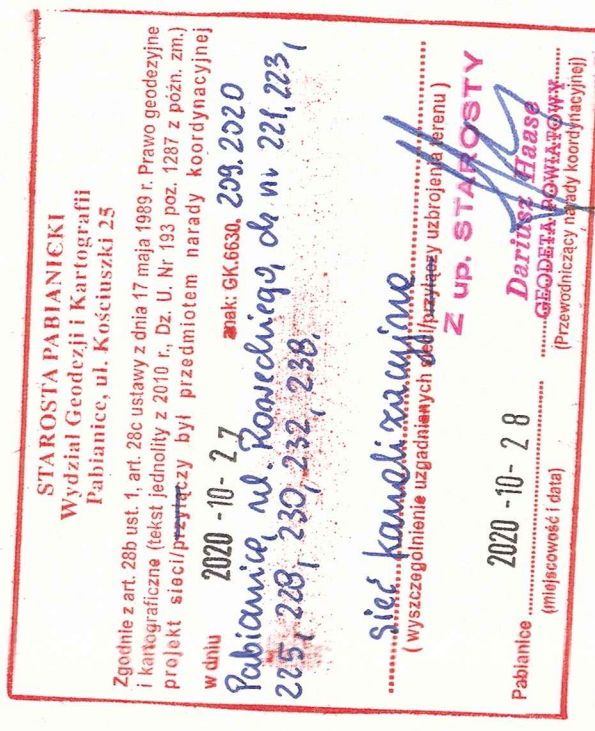 STAROSTA PABIANICKI
Wydział Geodezji i Kartografii
Pabianice, ul. Kościuszki 25
Zgodnie z art. 28b ust. 1, art. 28c ustawy z dnia 17 maja 1989 r. Prawo geodezyjne
i kartograficzne (tekst jednolity z 2010 r., Dz. U. Nr 193 poz. 1287 z późn. zm.)
projekt sieci/przyłączy był przedmiotem narady koordynacyjnej
w dniu 2020 -10- 27 znak: GK.6630. 209.2020
Pabianice, ul. Roweckiego, dz nr 221, 223,
225, 228, 230, 232, 238.
sieć kanalizacyjna
( wyszczególnienie uzgadnianych sieci/przyłączy uzbrojenia terenu )
Z up. STAROSTY
Dariusz Haase
GEODETA POWIATOWY
(Przewodniczący narady koordynacyjnej)
Pabianice 2020 -10- 28
(miejscowość i data)